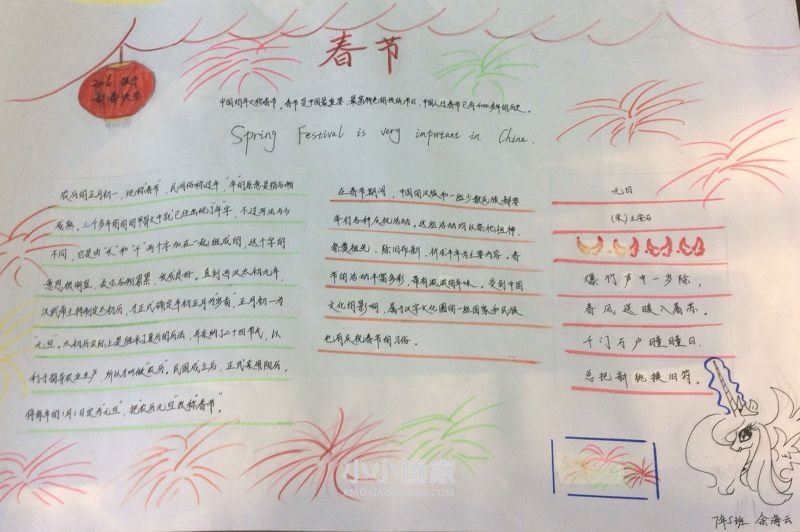 春节
2016
新春快乐
中国的年又称春节。春节是中国最重要、最富特色的传统节日,中国人过春节已有4000多年的历史。
Spring Festival is very important in China.
农历的正月初一,现称"春节",民间俗称过年,"年"的原意是指谷物
成熟。三个多年前的甲骨文中就已经出现了"年"字,不过写法与今
不同,它是由"禾"和"千"两个字加在一起组成的,这个字的
意思很明显,表示谷物累累,收成良好。直到西汉太初元年,
汉武帝主持制定太初历,才正式确定年初正月为"岁首",正月初一为
元旦"。太初历实际上是继承了夏历的历法,并采纳了二十四节气,以
利于指导农业生产,所以才叫做"农历"。民国成立后,正式采用阳历,
将每年的1月1日定为"元旦",把"农历元旦"改称春节"。
在春节期间,中国的汉族和一些少数民族都要
举行各种庆祝活动。这些活动均以祭祀祖神、
祭奠祖先、除旧布新、祈求丰年为主要内容。春
节的活动丰富多彩,带有浓浓的年味。受到中国
文化的影响,属于汉字文化圈的一些国家和民族
也有庆祝春节的习俗。
元日
(宋)王安石
爆竹声中一岁除,
春风送暖入屠苏。
千门万户曈曈日,
总把新桃换旧符。
小小画家
XIAOXIAOHUAJIA.COM
7年5班 余海云